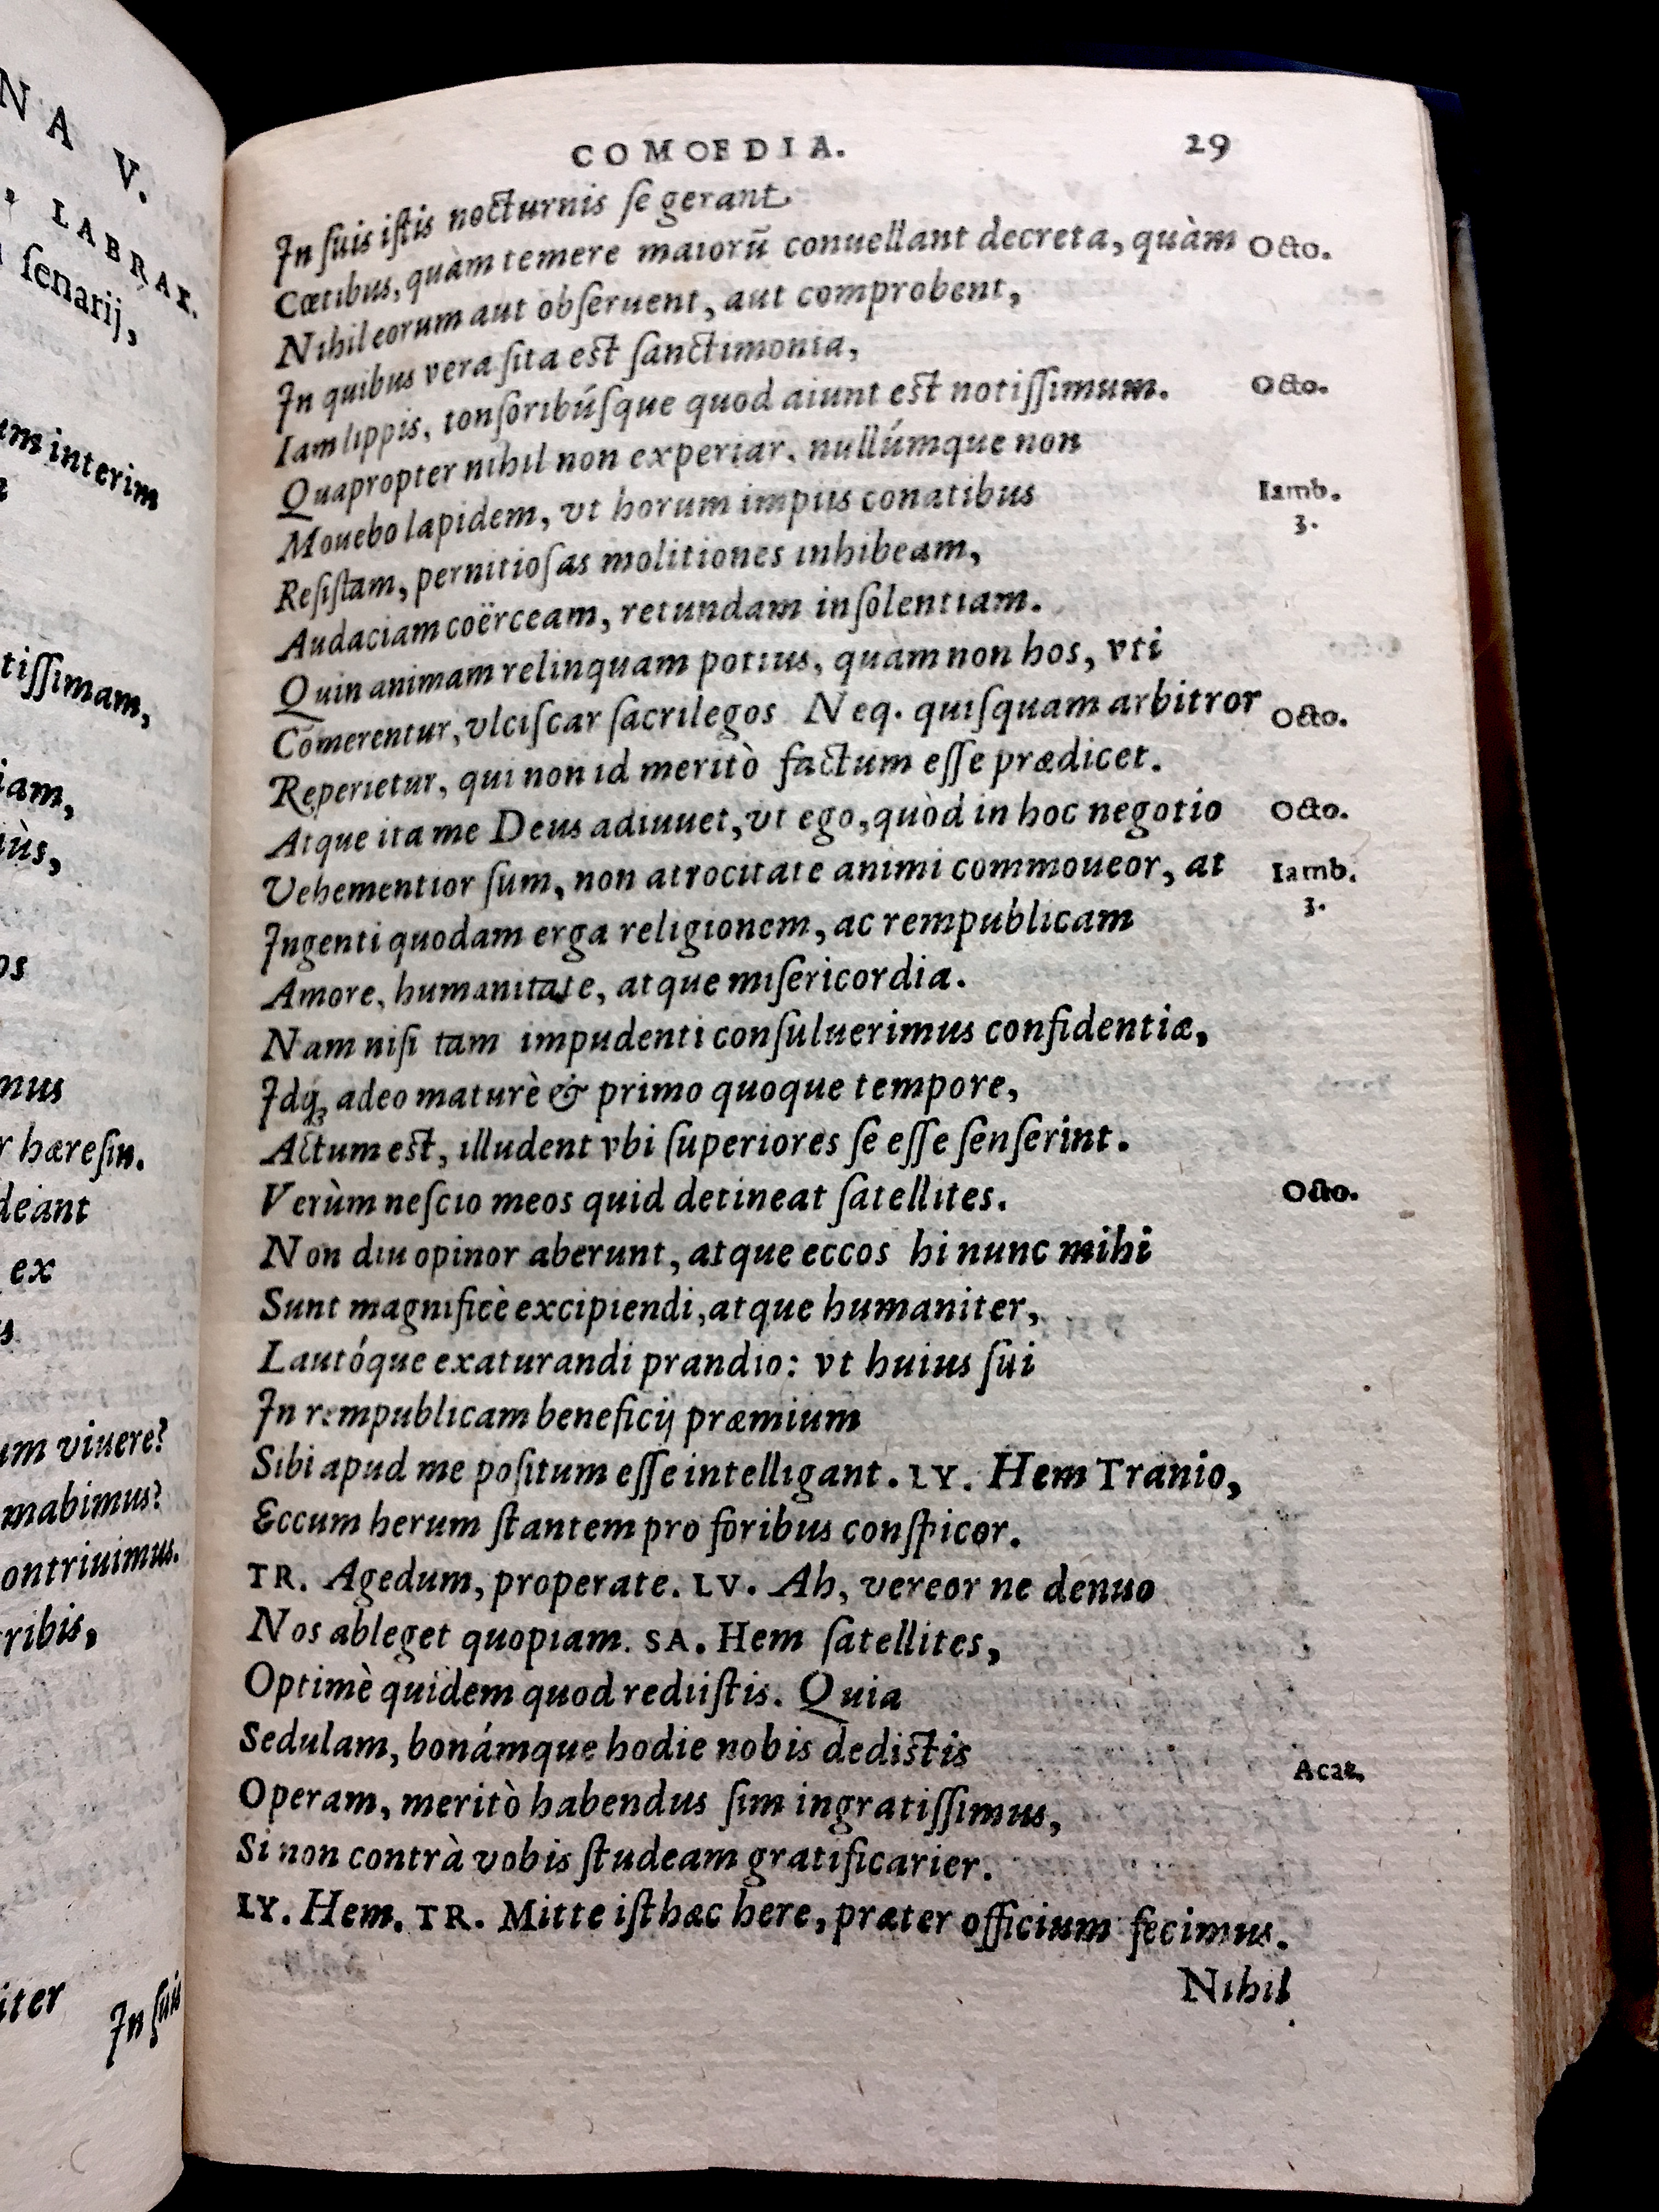 NA V.
, LABRAX.
ſenarij,
um interim
tiſſimam,
iam,
iùs,
os
mus
r hæreſin.
deant
ex
s.
um viuere?
mabimus?
ontriuimus.
ribis,
iter
In ſuis
COMOEDIA. 29
In ſuis iſtis nocturnis ſe gerant
Cœtibus, quàm temere maiorū conuellant decreta, quàm Octo.
Nihil eorum aut obſeruent, aut comprobent,
In quibus vera ſita est ſanctimonia,
Iam lippis, tonſoribúſque quod aiunt est notiſſimum. Octo.
Quapropter nihil non experiar, nullúmque non
Mouebo lapidem, vt horum impiis conatibus Iamb. 3.
Reſiſtam, pernitioſas molitiones inhibeam,
Audaciam coërceam, retundam inſolentiam.
Quin animam relinquam potius, quam non hos, vti
Comerentur, vlciſcar ſacrilegos Neq. quiſquam arbitror Octo.
Reperietur, qui non id meritò factum eſſe prædicet.
Atque ita me Deus adiuuet, vt ego, quòd in hoc negotio Octo.
Vehementior ſum, non atrocitate animi commoueor, at Iamb. 3.
Ingenti quodam erga religionem, ac rempublicam
Amore, humanitate, atque miſericordia.
Nam niſi tam impudenti conſuluerimus confidentiæ,
Idq; adeo maturè & primo quoque tempore,
Actum est, illudent vbi ſuperiores ſe eſſe ſenſerint.
Verùm neſcio meos quid detineat ſatellites. Octo.
Non diu opinor aberunt, atque eccos hi nunc mihi
Sunt magnificè excipiendi, atque humaniter,
Lautóque exaturandi prandio: vt huius ſui
In rempublicam beneficij præmium
Sibi apud me poſitum eſſe intelligant. LY. Hem Tranio,
Eccum herum ſtantem pro foribus conſpicor.
TR. Agedum, properate. LV. Ah, vereor ne denuo
Nos ableget quopiam. SA. Hem ſatellites,
Optimè quidem quod rediiſtis. Quia
Sedulam, bonámque hodie nobis dedistis Acat.
Operam, meritò habendus ſim ingratiſſimus,
Si non contrà vobis ſtudeam gratificarier.
LY. Hem. TR. Mitte iſthæc here, præter officium fecimus.
Nihil